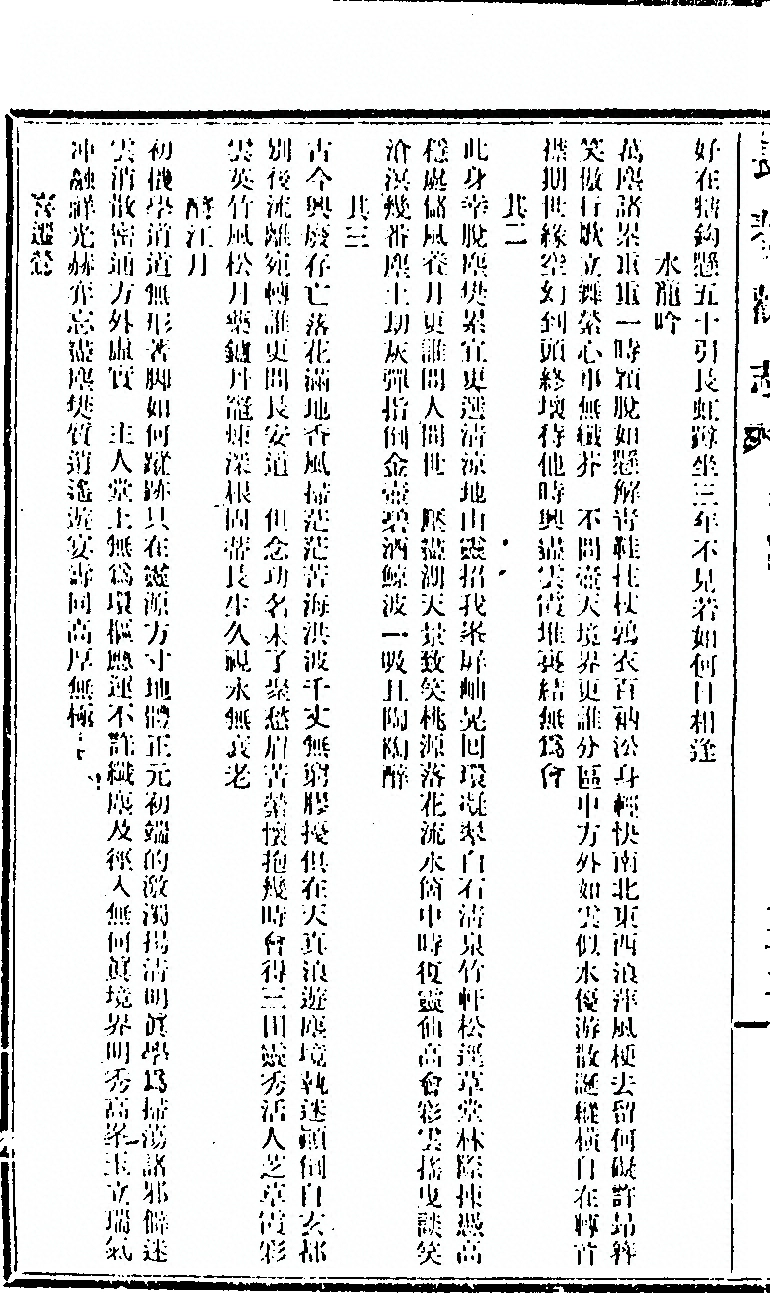 好在犗鈎懸五十引長虹蹲坐三年不見若如何日相逢
水龍吟
萬塵諸累重重一時穎脫如懸解靑鞋拄杖鶉衣百衲渾身輕快南北東西浪萍風梗去留何礙許昂藏
笑傲行歌立舞縈心事無纖芥　不問壺天境界更誰分區中方外如雲似水優游散誕縱橫自在轉首
襟期世緣空幻到頭終壞待他時興盡雲霞堆裏結無爲會
其二
此身幸脫塵樊累宜更選淸凉地山靈招我峯屛岫晃回環凝翠白石淸泉竹軒松逕草堂林際揀憑高
穩處儲風養月更誰問人間世　壓盡湖天景致笑桃源落花流水箇中時復靈仙高會彩雲搖曳談笑
滄溟幾番塵土劫灰彈指倒金壺碧酒鯨波一吸且陶陶醉
其三
古今興廢存亡落花滿地香風掃茫茫苦海洪波千丈無窮膠擾俱在天眞浪遊塵境執迷顚倒自玄都
別後流離宛轉誰更問長安道　但念功名未了聚愁眉苦縈懷抱幾時會得三田靈秀活人芝草霞彩
雲英竹風松月藥鑪丹竈煉深根固蔕長生久視永無衰老
酹江月
初機學道道無形著脚如何蹤跡只在靈源方寸地體正元初端的激濁揚淸明眞學爲掃蕩諸邪僻迷
雲消散密通方外虛實　主人堂上無爲環樞應運不許纖塵及徑入無何眞境界明秀高峯玉立瑞氣
沖融祥光赫奕忘盡塵樊質逍遙遊宴壽同高厚無極
喜遷鶯